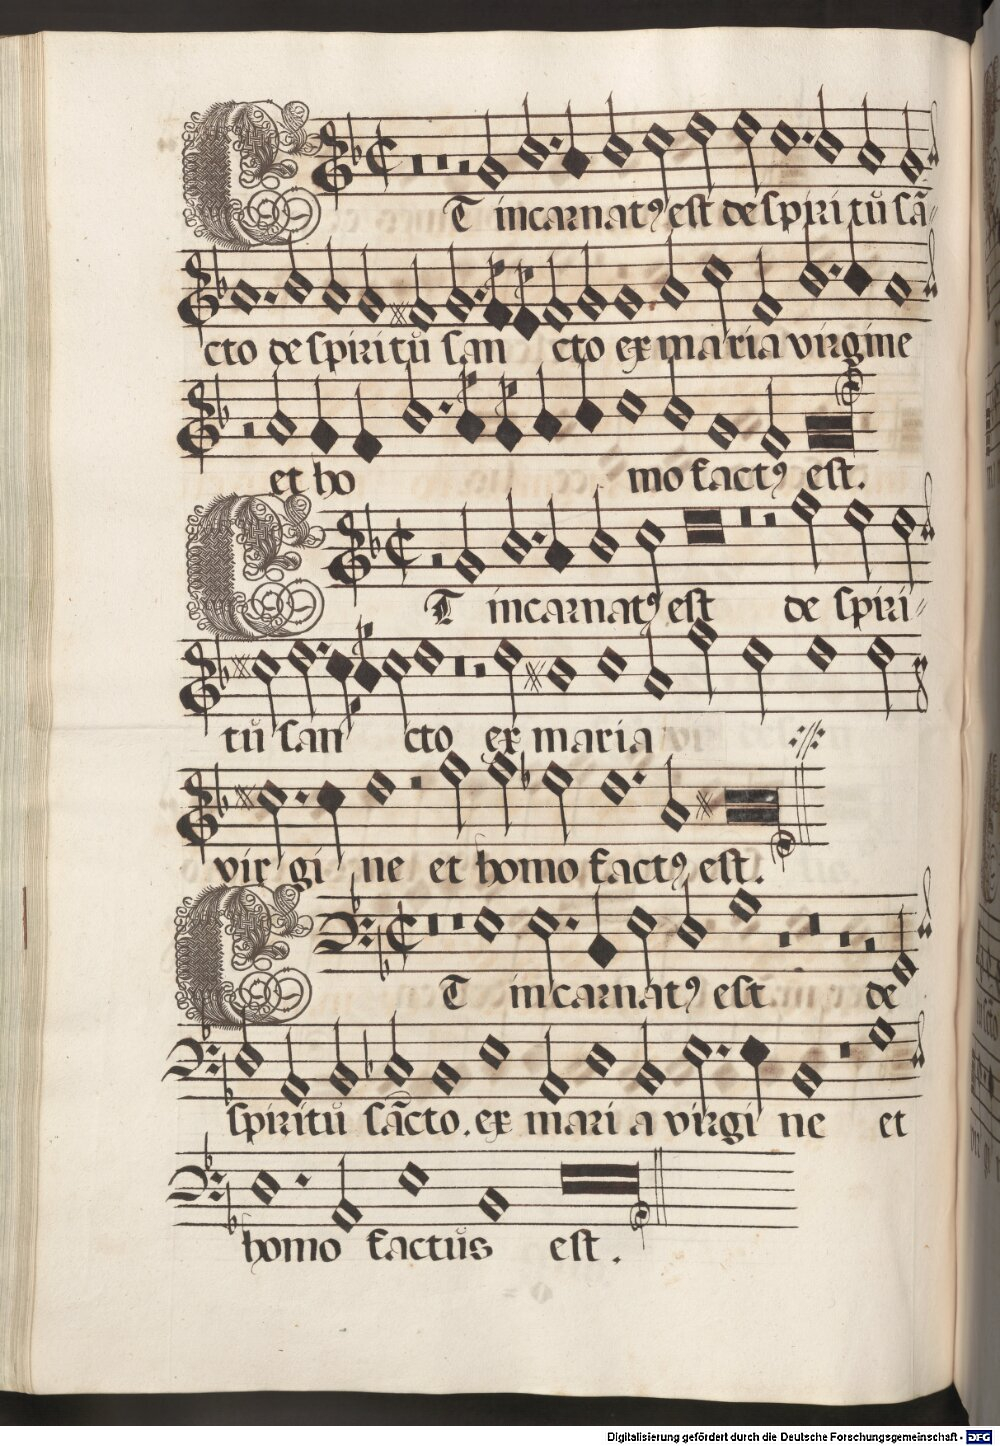 ET incarnatꝰ est de spiritū sā-
cto de spiritū san cto ex maria virgine
et ho mo factꝰ est.
ET incarnatꝰ est de spiri-
tū san cto ex maria
virgi ne et homo factꝰ est.
ET incarnatꝰ est de
spiritū sācto. ex mari a virgi ne et
homo factūs est.
Digitalisierung gefördert durch die Deutsche Forschungsgemeinschaft - DFG